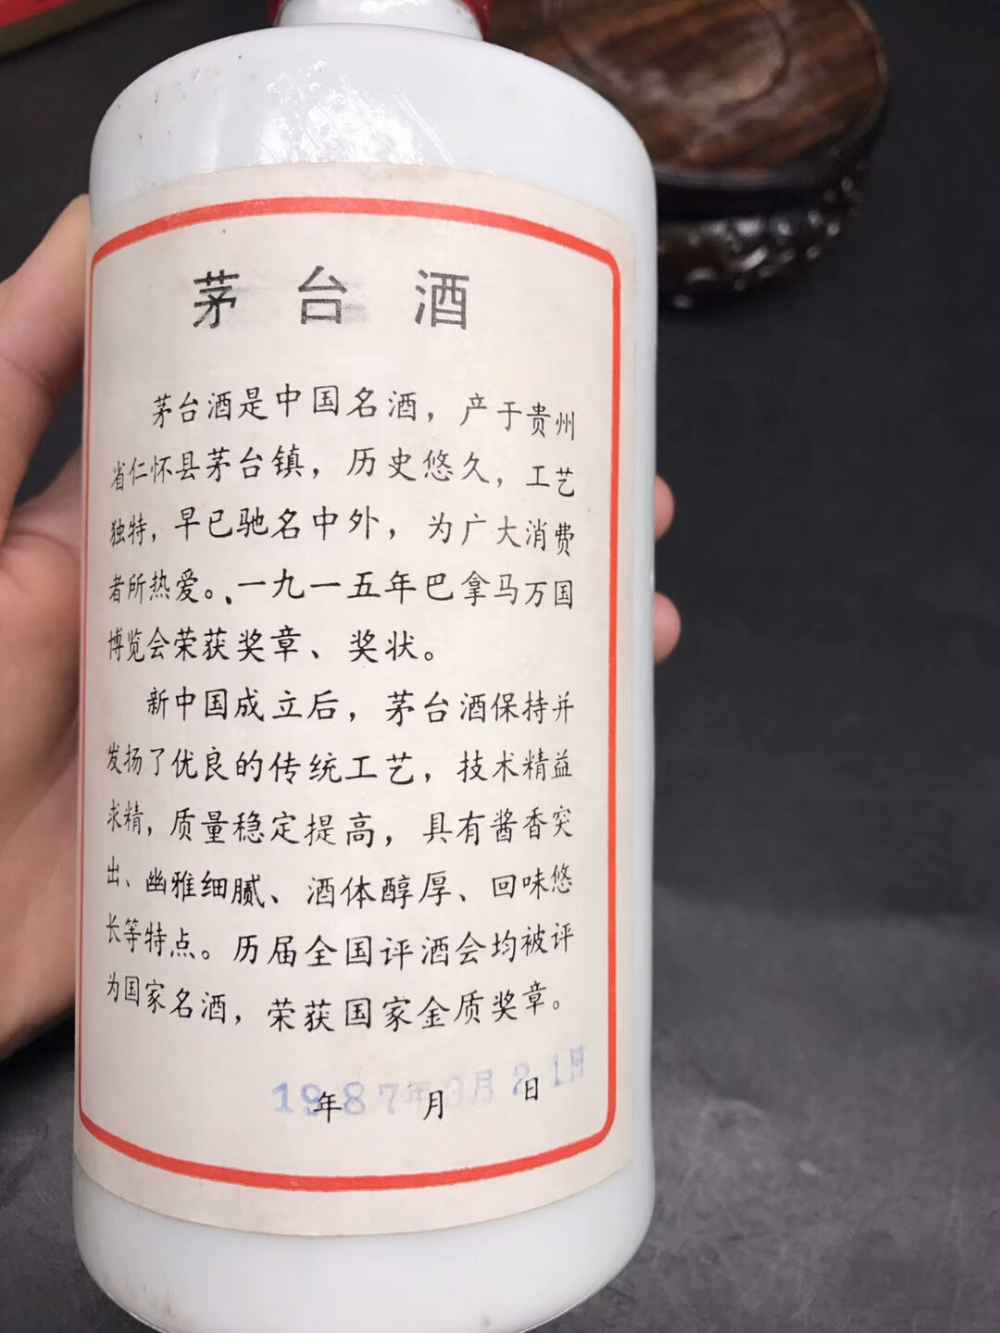 茅台酒
茅台酒是中国名酒，产于贵州
省仁怀县茅台镇，历史悠久，工艺
独特，早已驰名中外，为广大消费
者所热爱。、一九一五年巴拿马万国
博览会荣获奖章、奖状。
新中国成立后，茅台酒保持并
发扬了优良的传统工艺，技术精益
求精，质量稳定提高，具有酱香突
出、幽雅细腻、酒体醇厚、回味悠
长等特点。历届全国评酒会均被评
为国家名酒，荣获国家金质奖章。
1987年 月21日
年 月 日